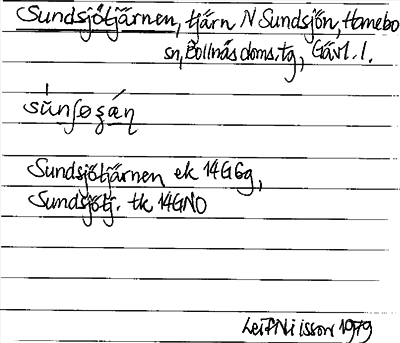 Sundsjötjärnen, tjärn N Sundsjön, Hamebo
sn, Bollnäs doms.tg, Gävl. l.
Sundsjötjärnen ek 14G6g,
Sundsjötj. tk 14GNO
Leif Nilsson 1979